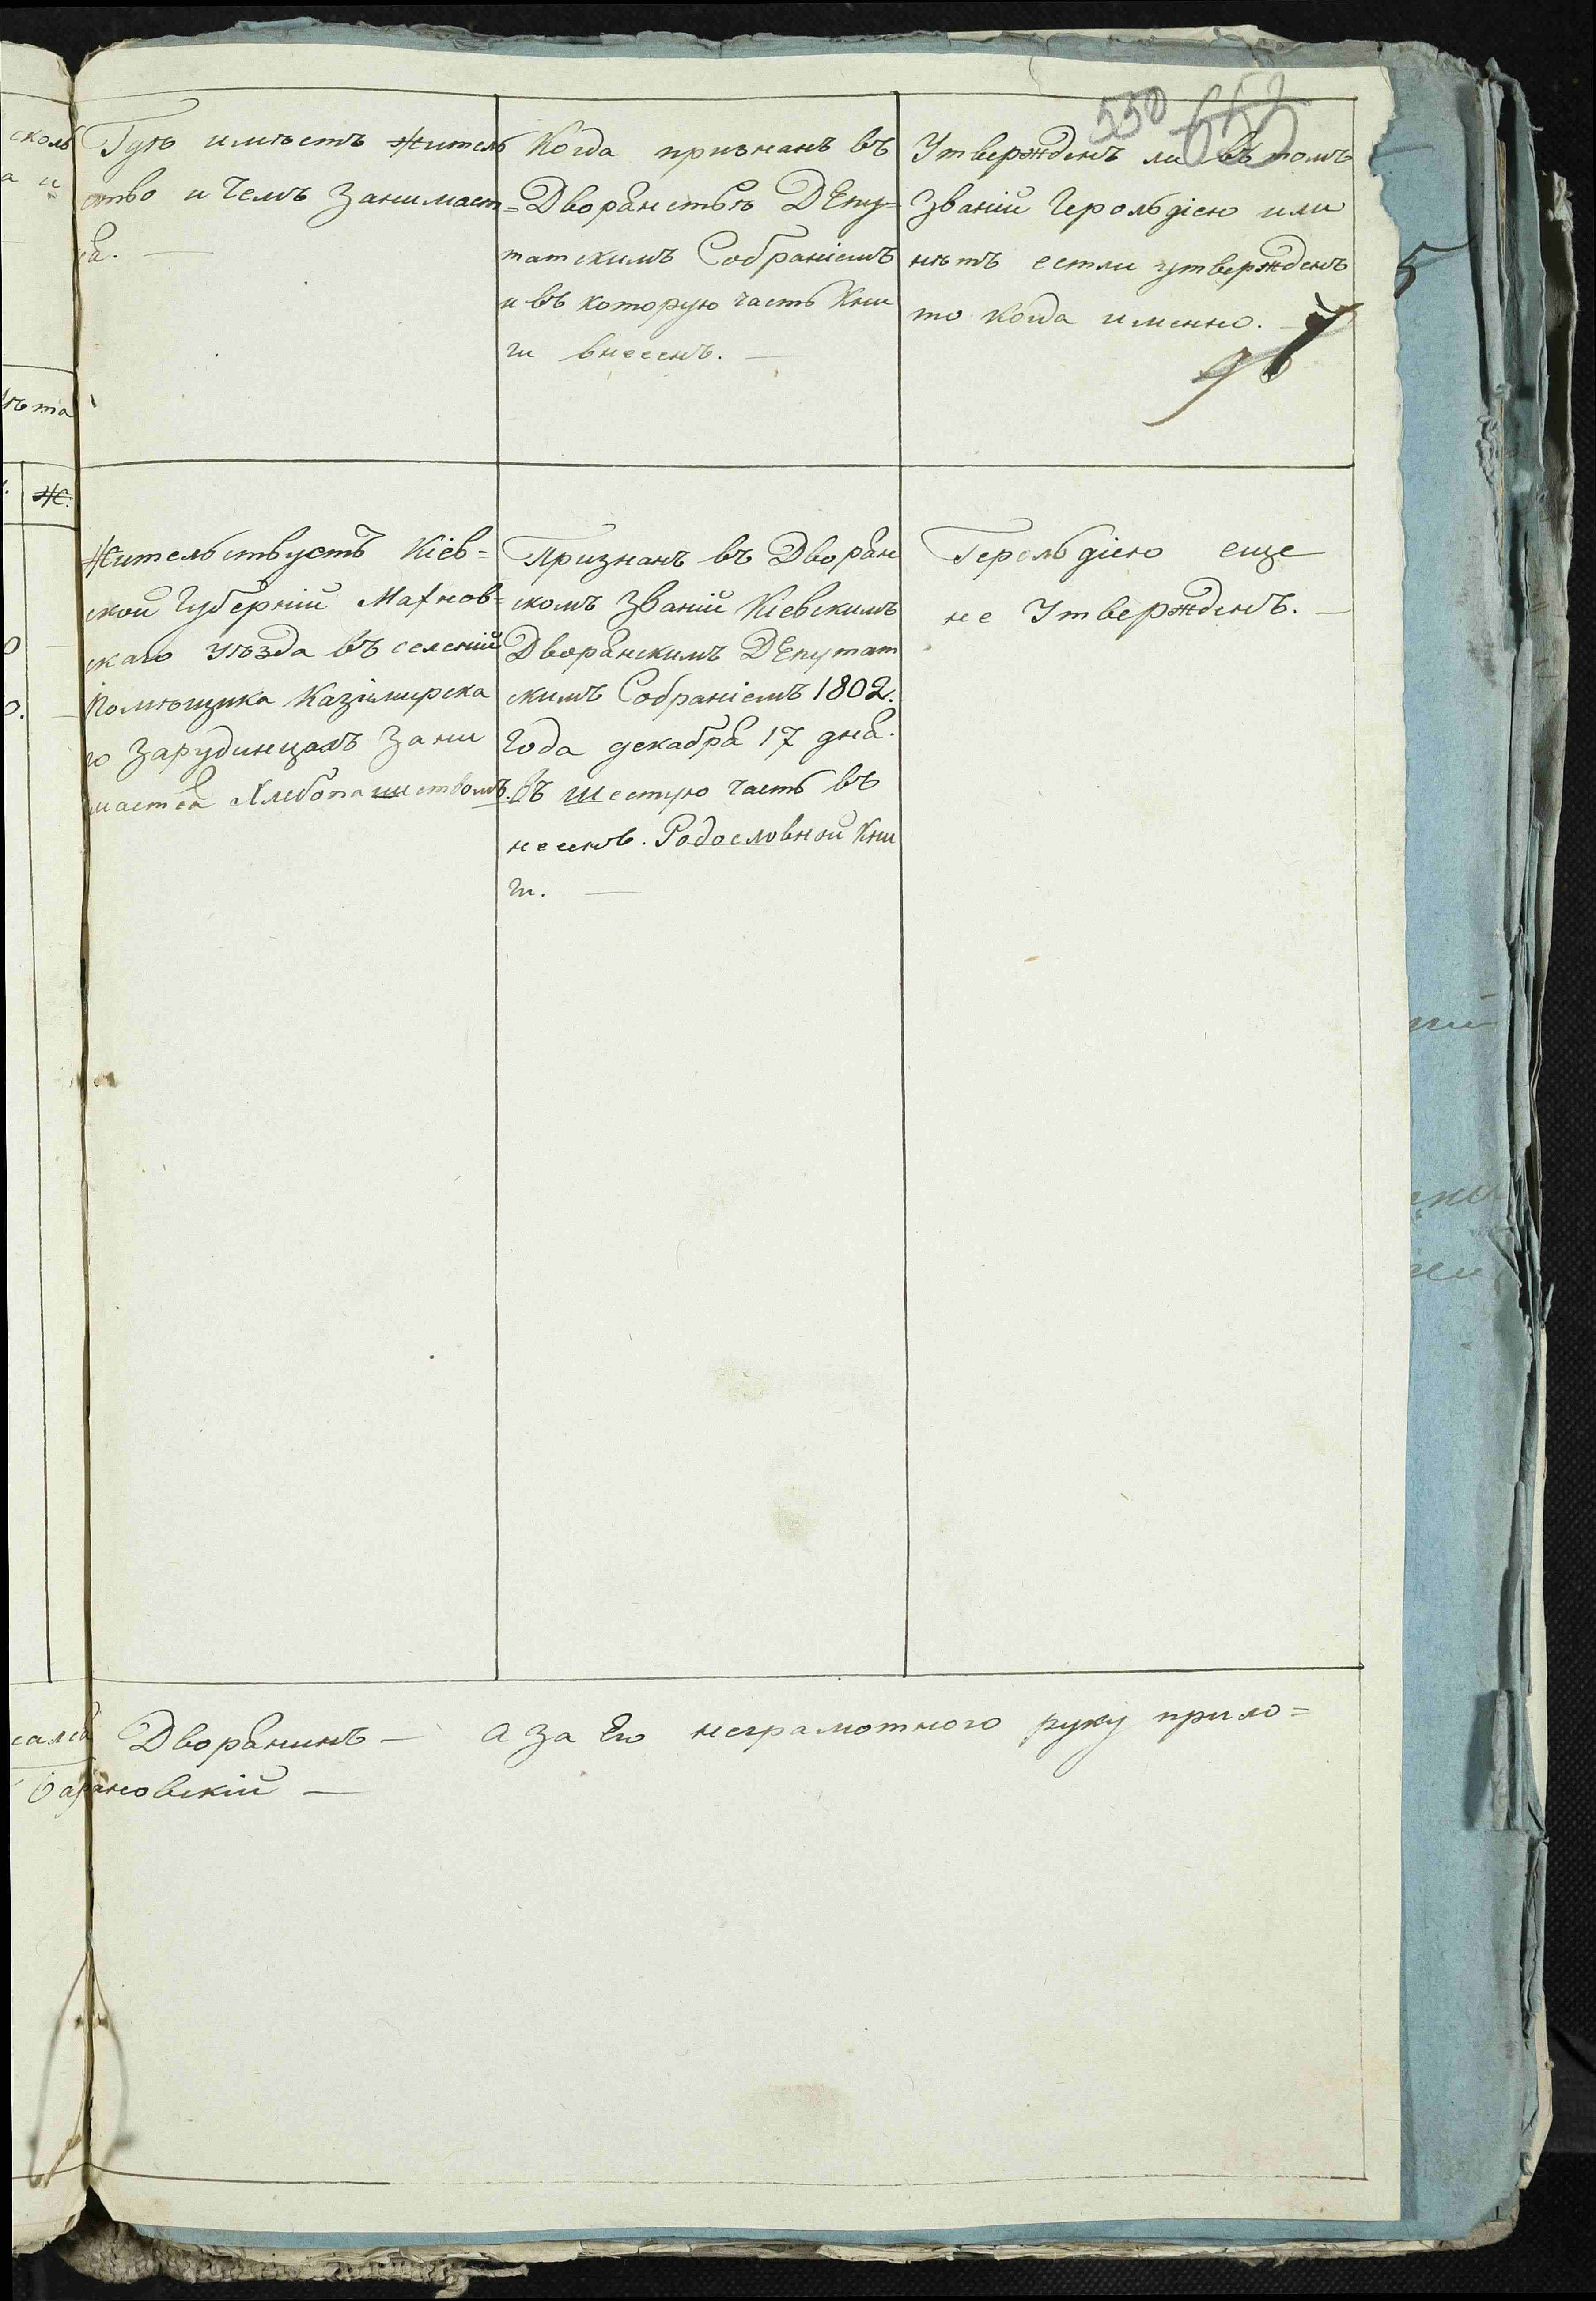 550 652
Гдѣ имѣетъ житель
ство и чемъ занимает
ся. —
Когда признанъ въ
Дворянствѣ Депу=
татскимъ Собраніемъ
и въ которую часть Кни
ги внесенъ. —
Утвержденъ ли въ томъ
Званіи Герольдіею или
нѣтъ естли утвержденъ
то когда именно. —
Жительствуетъ Кіев=
ской Губерніи Махнов=
скаго уѣзда въ селеніи
Помѣщика Казімирска
го Зарудинцахъ Зани
мается Хлебопашествомъ.
Признанъ въ Дворян
скомъ Званіи Кіевскимъ
Дворянскимъ Депутат
скимъ Собраніемъ 1802.
Года декабря 17 дня.
Въ шестую часть въ
несенъ. Родословной Кни
ги. —
Герольдіею еще
не Утвержденъ. —
Дворянинъ — а за Его неграмотного руку прило=
Барановскій —
сколь
ѣта
Ж.
5